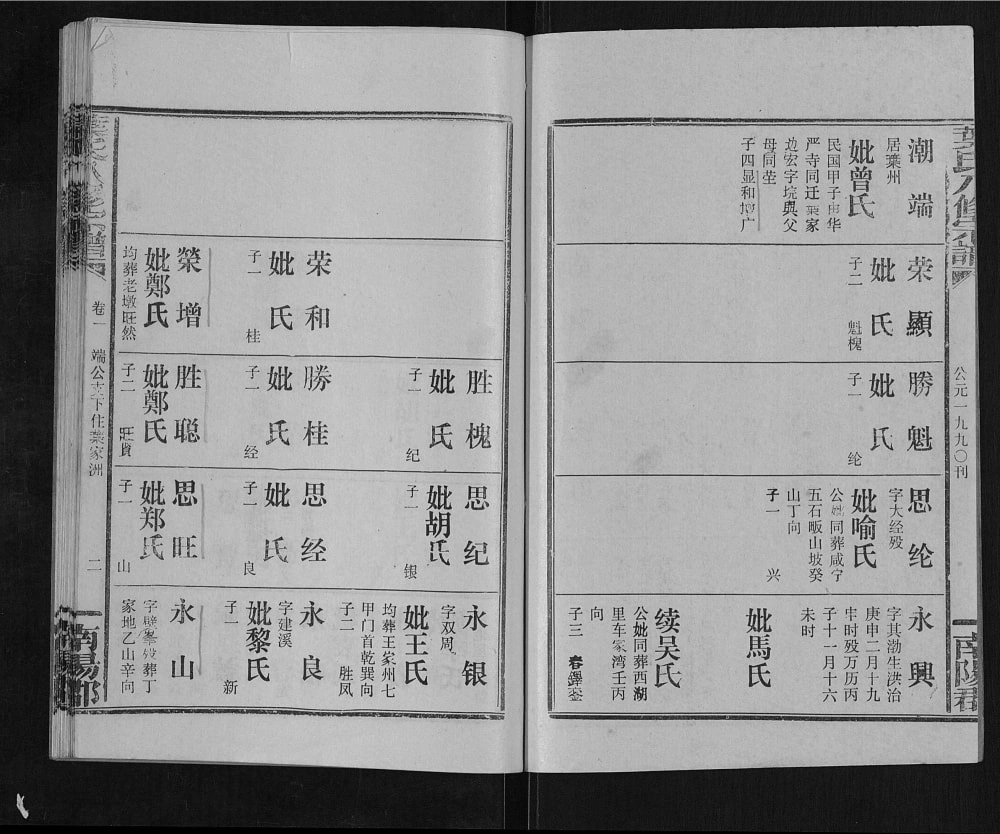 葉氏八修宗譜
公元一九九〇刊
南陽郡
潮端
居葉州
妣曾氏
民国甲子由华
严寺同迁葉家
边宏字垸與父
母同茔
子四显和增广
荣顯
妣氏
子二 魁槐
勝魁
妣氏
子一 纶
思纶
字大经殁
妣喻氏
公妣同葬咸宁
五石畈山坡癸
山丁向
子一 兴
永興
字其渤生洪治
庚申二月十九
牢时殁万历丙
子十一月十六
未时
妣馬氏
续吴氏
公妣同葬西湖
里车家湾壬丙
向
子三 春鐸銮
荣和
妣氏
子一 桂
榮增
妣鄭氏
均葬老墩旺然
胜槐
妣氏
子一 纪
勝桂
妣氏
子一 经
胜聪
妣鄭氏
子二 旺貴
思纪
妣胡氏
子一 银
思经
妣氏
子一 良
思旺
妣郑氏
子一 山
永银
字双周
妣王氏
均葬王家州七
甲门首乾巽向
子二 胜凤
永良
字建溪
妣黎氏
子一 新
永山
家地乙山辛向
卷一
端公支下住葉家洲
二
南陽郡